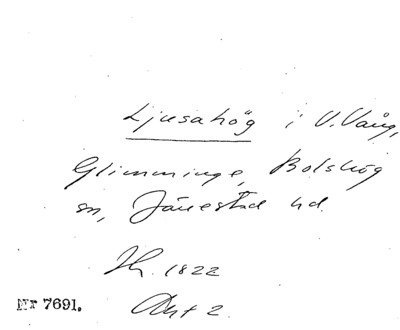 Ljusahög i V. Vång,
Glimminge, Bolshög
sn, Järrestad hd.
1822
Akt 2.
Nr 7691.